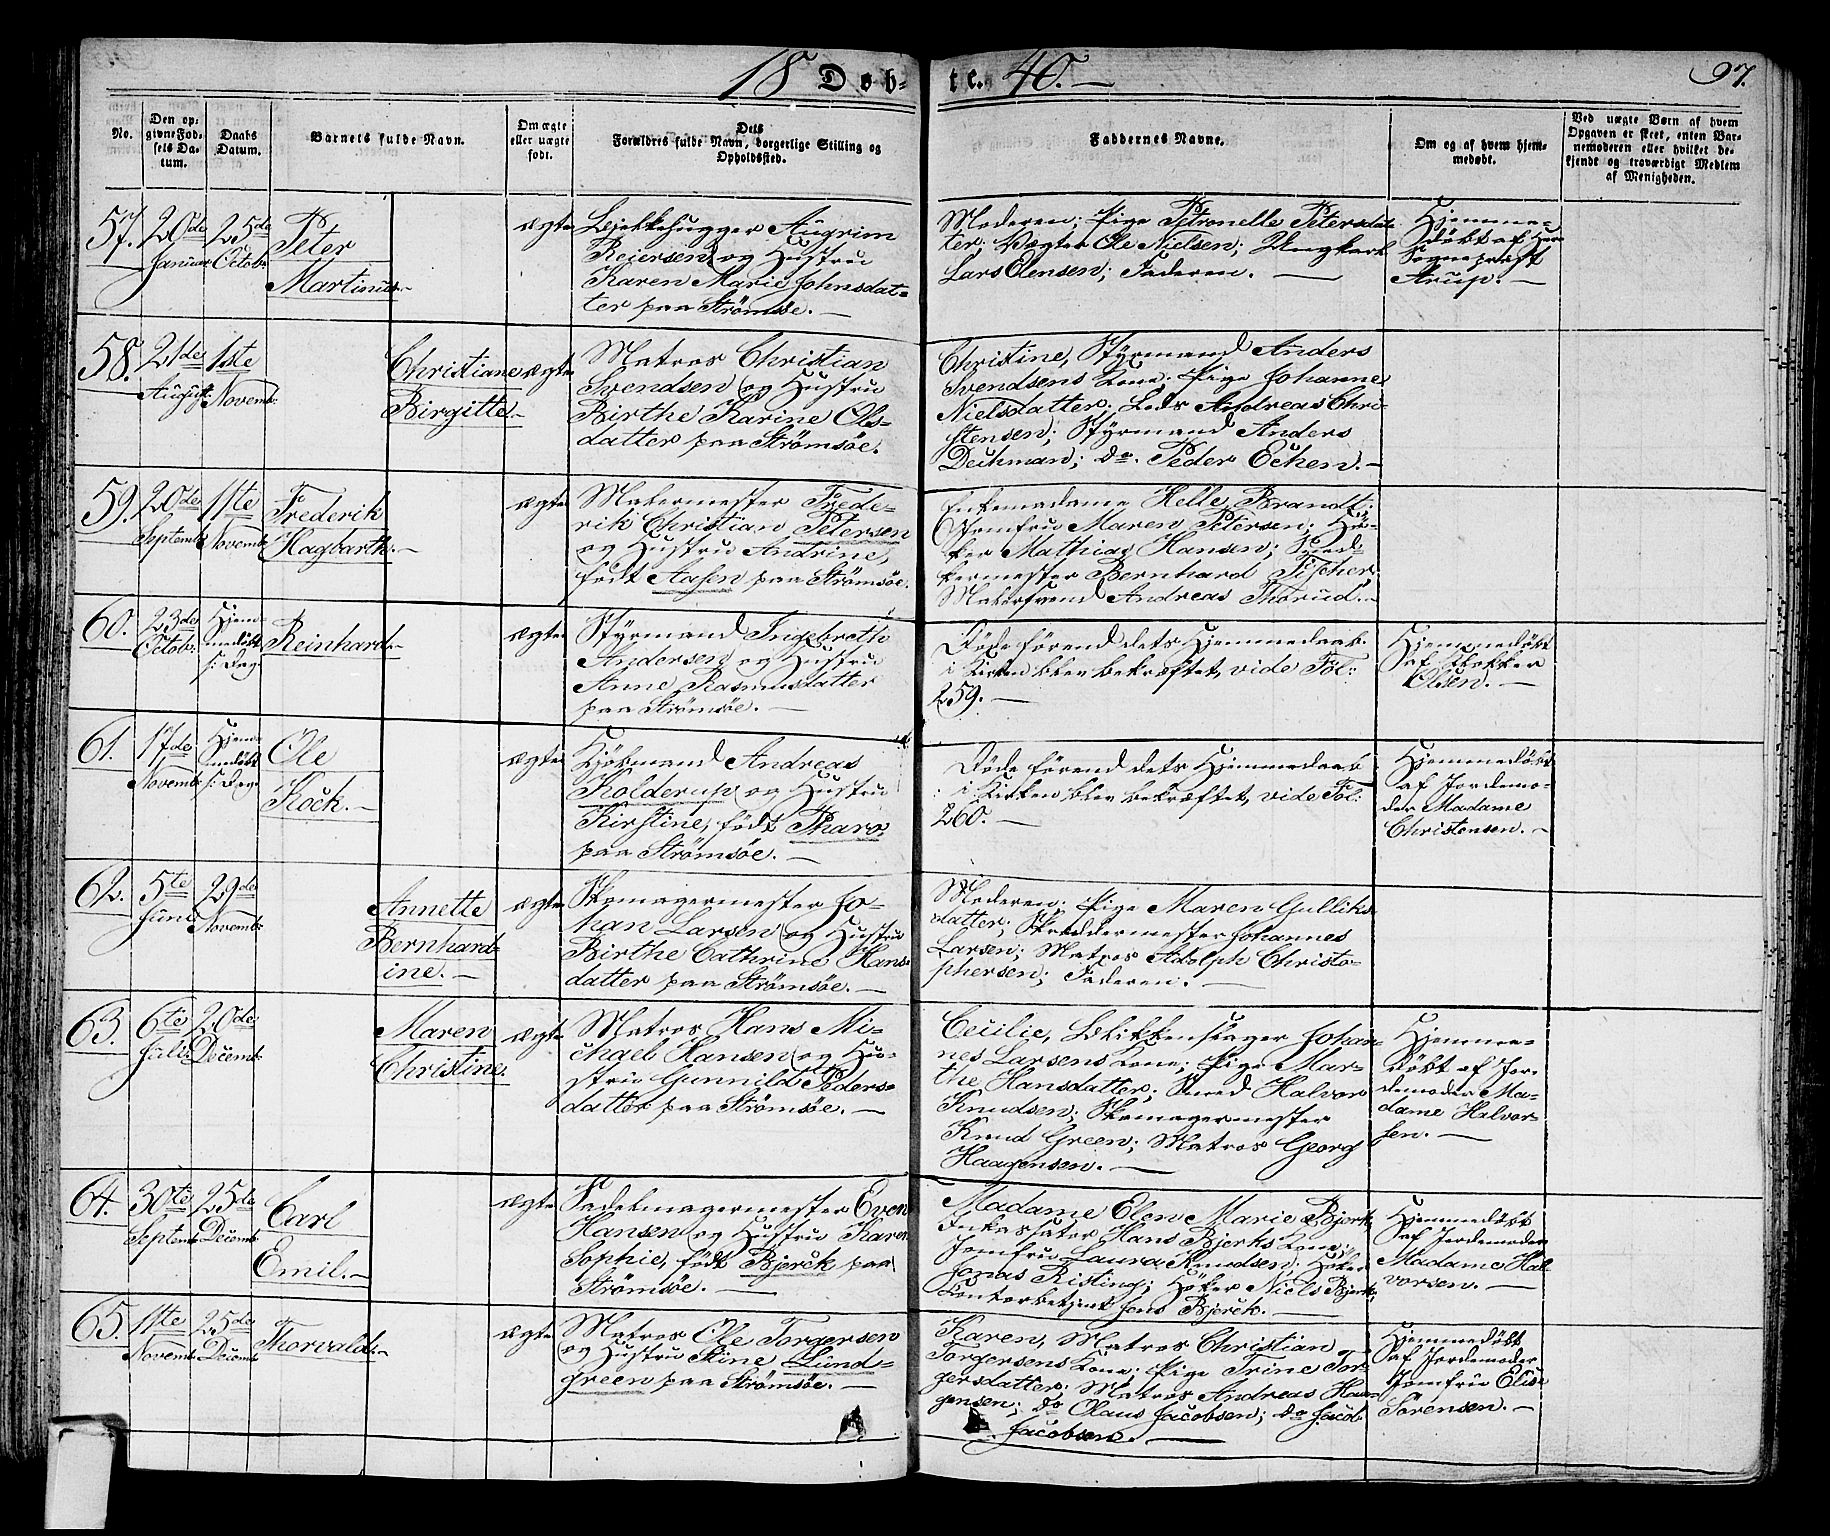 18 Døb-
te. 40. —
97.
No.
Den op-
givne Fød-
sels Da-
tum.
Daabs
Datum.
Barnets fulde Navn.
Om ægte
eller uægte
født.
Dets
Forældres fulde Navn, borgerlige Stilling og
Opholdssted.
Faddernes Navne.
Om og af hvem hjem-
medøbt.
Ved uægte Børn af hvem
Opgaven er skeet, enten Bar-
nemoderen eller hvilket be-
kjendt og troværdigt Medlem
af Menigheden.
57. 20de Januar 25de Octob:
Peter
Martinus.—
ægte
Augrim
Reiersen og Hustru
Karen Marie Johnsdat-
ter paa Strömsöe. —
Moderen; Pige Petronelle Petersdat-
ter; Vægter Ole Nielsen; Ungkarl
Lars Olensen; Faderen. —
Hjemme-
döbt af Her
Sogneprest
Arup. —
58. 21de August 1ste Novemb:
Christiane
Birgitte.—
ægte
Matros Christian
Svendsen og Hustru
Birthe Karine Ols-
datter paa Strömsöe.
Christine, Styrmand Anders
Svendsens Kone; Pige Johanne
Nielsdatter; Lods Andreas Chri-
stensen; Styrmand Anders
Deichman; do. Peder Echen. —
59. 20de Septemb: 1ste Novemb:
Frederik
Hagbarth.—
ægte
Malermester Frede-
rik Christian Petersen
og Hustru Andrine,
födt Aasen paa Strömsöe.
Enkemadame Helle Brandt;
Jomfru Maren Petersen; Hö-
ker Mathias Hansen; Sned-
kermester Bernhard Fischer;
Malersvend Andreas Thorud. —
60. 23de Octob: Hjem-
medöbt
s: Dag
Reinhard.—
ægte
Styrmand Ingebreth
Andersen og Hustru
Anne Rasmusdatter
paa Strömsöe. —
Döde förend dets Hjemmedaab
i Kirken blev bekræftet, vide Fol:
259. —
Hjemmedöbt
af Klokker
Olsen. —
61. 17de Novemb: Hjem-
medöbt
s: Dag
Ole
Kock. —
ægte
Kjöbmand Andreas
Kolderup og Hustru
Kirstine, födt Tharo,
paa Strömsöe. —
Döde förend dets Hjemmedaab
i Kirken blev bekræftet, vide Fol:
260. —
Hjemmedöbt
af Jordemo-
der Madame
Christensen. —
62. 5te Juni 29de Novemb:
Annette
Bernhard-
ine. —
ægte
Skomagermester Jo-
han Larsen og Hustru
Birthe Cathrine Hans-
datter paa Strömsöe. —
Moderen; Pige Maren Gulliks-
datter; Skreddermester Johannes
Larsen; Matros Adolph Christo-
phersen; Faderen. —
63. 6te Juli 20de Decemb:
Maren
Christine.
ægte
Matros Hans Mi-
chael Hansen og Hu-
stru Gunnild Peders-
datter paa Strömsöe. —
Cecilie, Blikkenslager Johan-
nes Larsens Kone; Pige Mar-
the Hansdatter; Smed Halvor
Knudsen; Skomagermester
Knud Green; Matros Georg
Haagensen. —
Hjemme-
döbt af Jor-
demoder Ma-
dame Halvor-
sen. —
64. 30te Septemb: 25de Decemb:
Carl
Emil. —
ægte
Sadelmagermester Even
Hansen og Hustru Karen
Sophie, födt Bjerck paa
Strömsöe. —
Madame Elen Marie Bjerk,
Inkassator Hans Bjerks Kone;
Jomfru Laura Knudsen; Höker
Jonas Risting; Höker Niels Bjerk;
Contorbetjent Jens Bjerck. —
Hjemmedöbt
af Jordemoder
Madame Hal-
vorsen. —
65. 1ste Novemb: 25de Decemb:
Thorvald.—
ægte
Matros Ole Torgersen
og Hustru Stine Lund-
green paa Strömsöe. —
Karen, Matros Christian
Torgersens Kone; Pige Trine Tor-
gersdatter; Matros Andreas Haa-
gensen; do Olaus Jacobsen; do Jacob
Jacobsen. —
Hjemmedöbt
af Jordemoder
Jomfru Elise
Sörensen. —